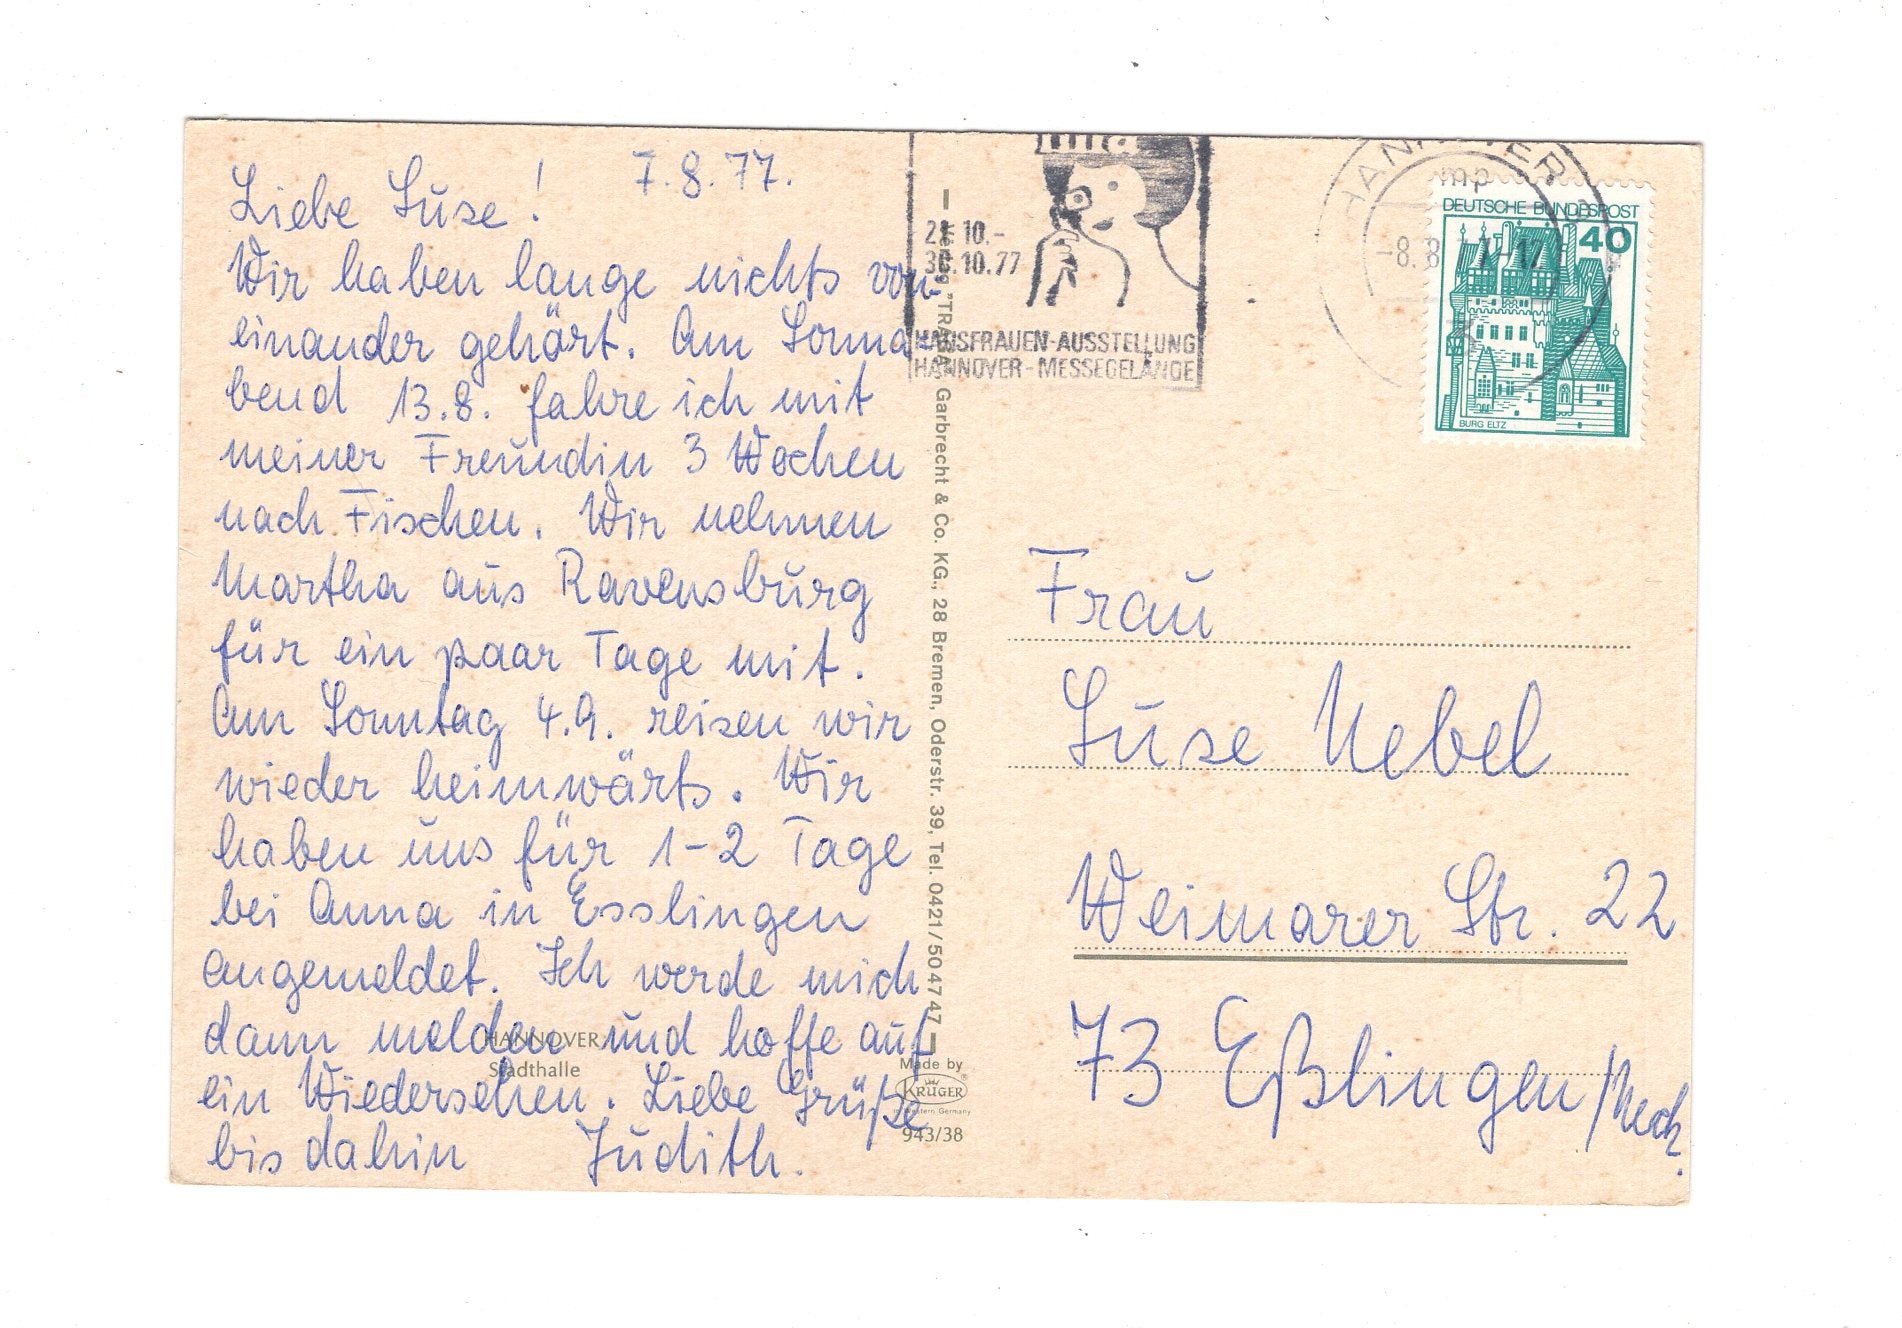 7.8.77.
Liebe Suse!
Wir haben lange nichts von-
einander gehört. Am Sonna-
bend 13.8. fahre ich mit
meiner Freundin 3 Wochen
nach Fischen. Wir nehmen
Martha aus Ravensburg
für ein paar Tage mit.
Am Sonntag 4.9. reisen wir
wieder heimwärts. Wir
haben uns für 1-2 Tage
bei Anna in Esslingen
angemeldet. Ich werde mich
dann melden und hoffe auf
ein Wiedersehen. Liebe Grüße
bis dahin Judith.
HANNOVER,
Stadthalle
Verlag "TRABA" Garbrecht & Co. KG., 28 Bremen, Oderstr. 39, Tel. 0421/504747
Made by
KRÜGER®
Western Germany
943/38
infa
21.10.-
30.10.77
HAUSFRAUEN-AUSSTELLUNG
HANNOVER-MESSEGELÄNDE
HANNOVER
-8.8.77-17
DEUTSCHE BUNDESPOST
40
BURG ELTZ
Frau
Suse Nebel
Weimarer Str. 22
73 Eßlingen/Neck.